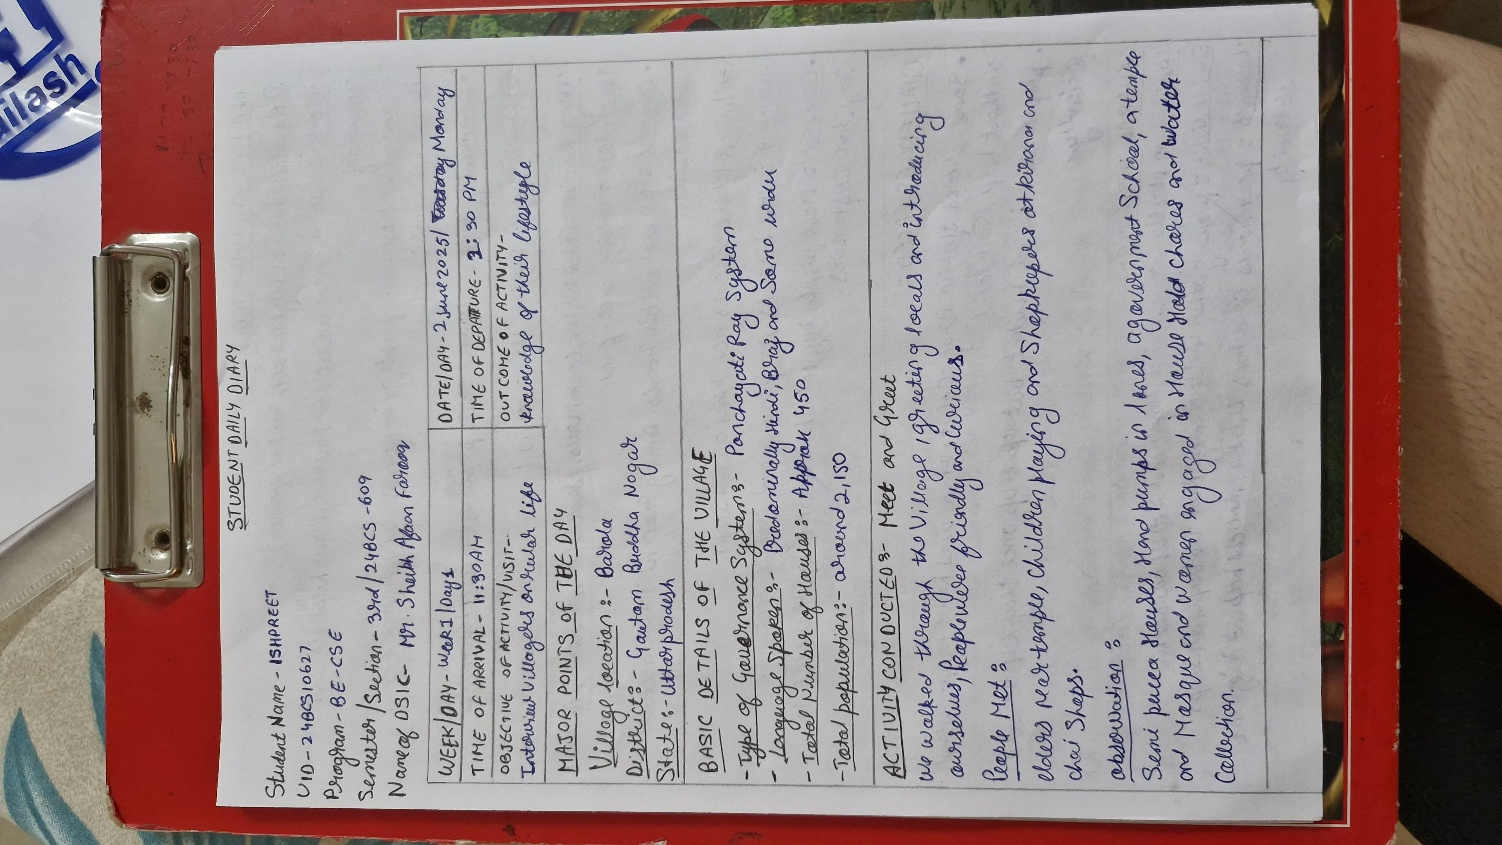 STUDENT DAILY DIARY
Student Name - ISHPREET
UID - 24BCS10627
Program - BE-CSE
Semester/Section - 3rd/24BCS-609
Name of DSIC - Mr. Sheikh Afaan Farooq
WEEK/DAY - Week1/Day1
DATE/DAY - 2 June 2025/ Monday
TIME OF ARRIVAL - 11:30AM
TIME OF DEPARTURE - :30 PM
OBJECTIVE OF ACTIVITY/VISIT-
Interview Villagers on rular life
OUTCOME OF ACTIVITY-
knowledge of their lifestyle
MAJOR POINTS OF THE DAY
Village location :- Barola
District :- Gautam Buddha Nagar
State :- Uttar pradesh
BASIC DETAILS OF THE VILLAGE
- Type of Governance System :- Panchayati Raj System
- Language Spoken :- Predominally Hindi, Braj and Some urdu
- Total Number of Houses :- Approx 450
- Total population :- around 2,150
ACTIVITY CONDUCTED :- Meet and Greet
We walked through the Village, greeting locals and introducing
ourselves, People were friendly and Curious.
People Met :
elders near temple, children playing and Shopkeepers at kirana and
chai Shops.
observation :
Semi pucca Houses, Hand pumps in lanes, a government School, a temple
and Masque and women engaged in House Hold chores and water
Collection.
ailash